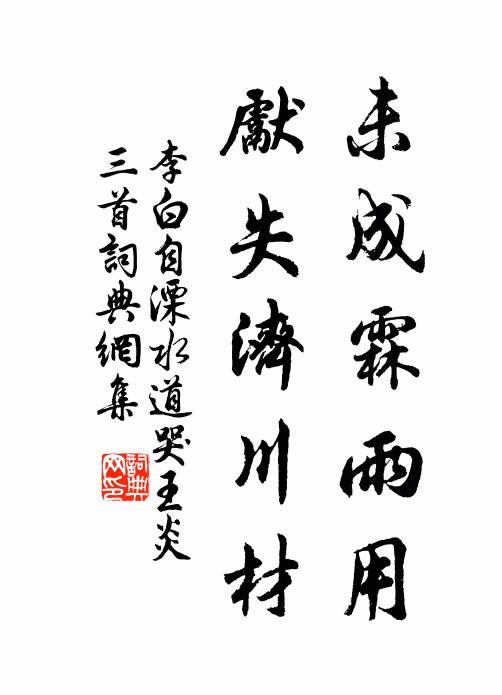 未成霖雨用
獻失濟川材
李白自溧水道哭王炎
三首詞典網集
詞典
网印